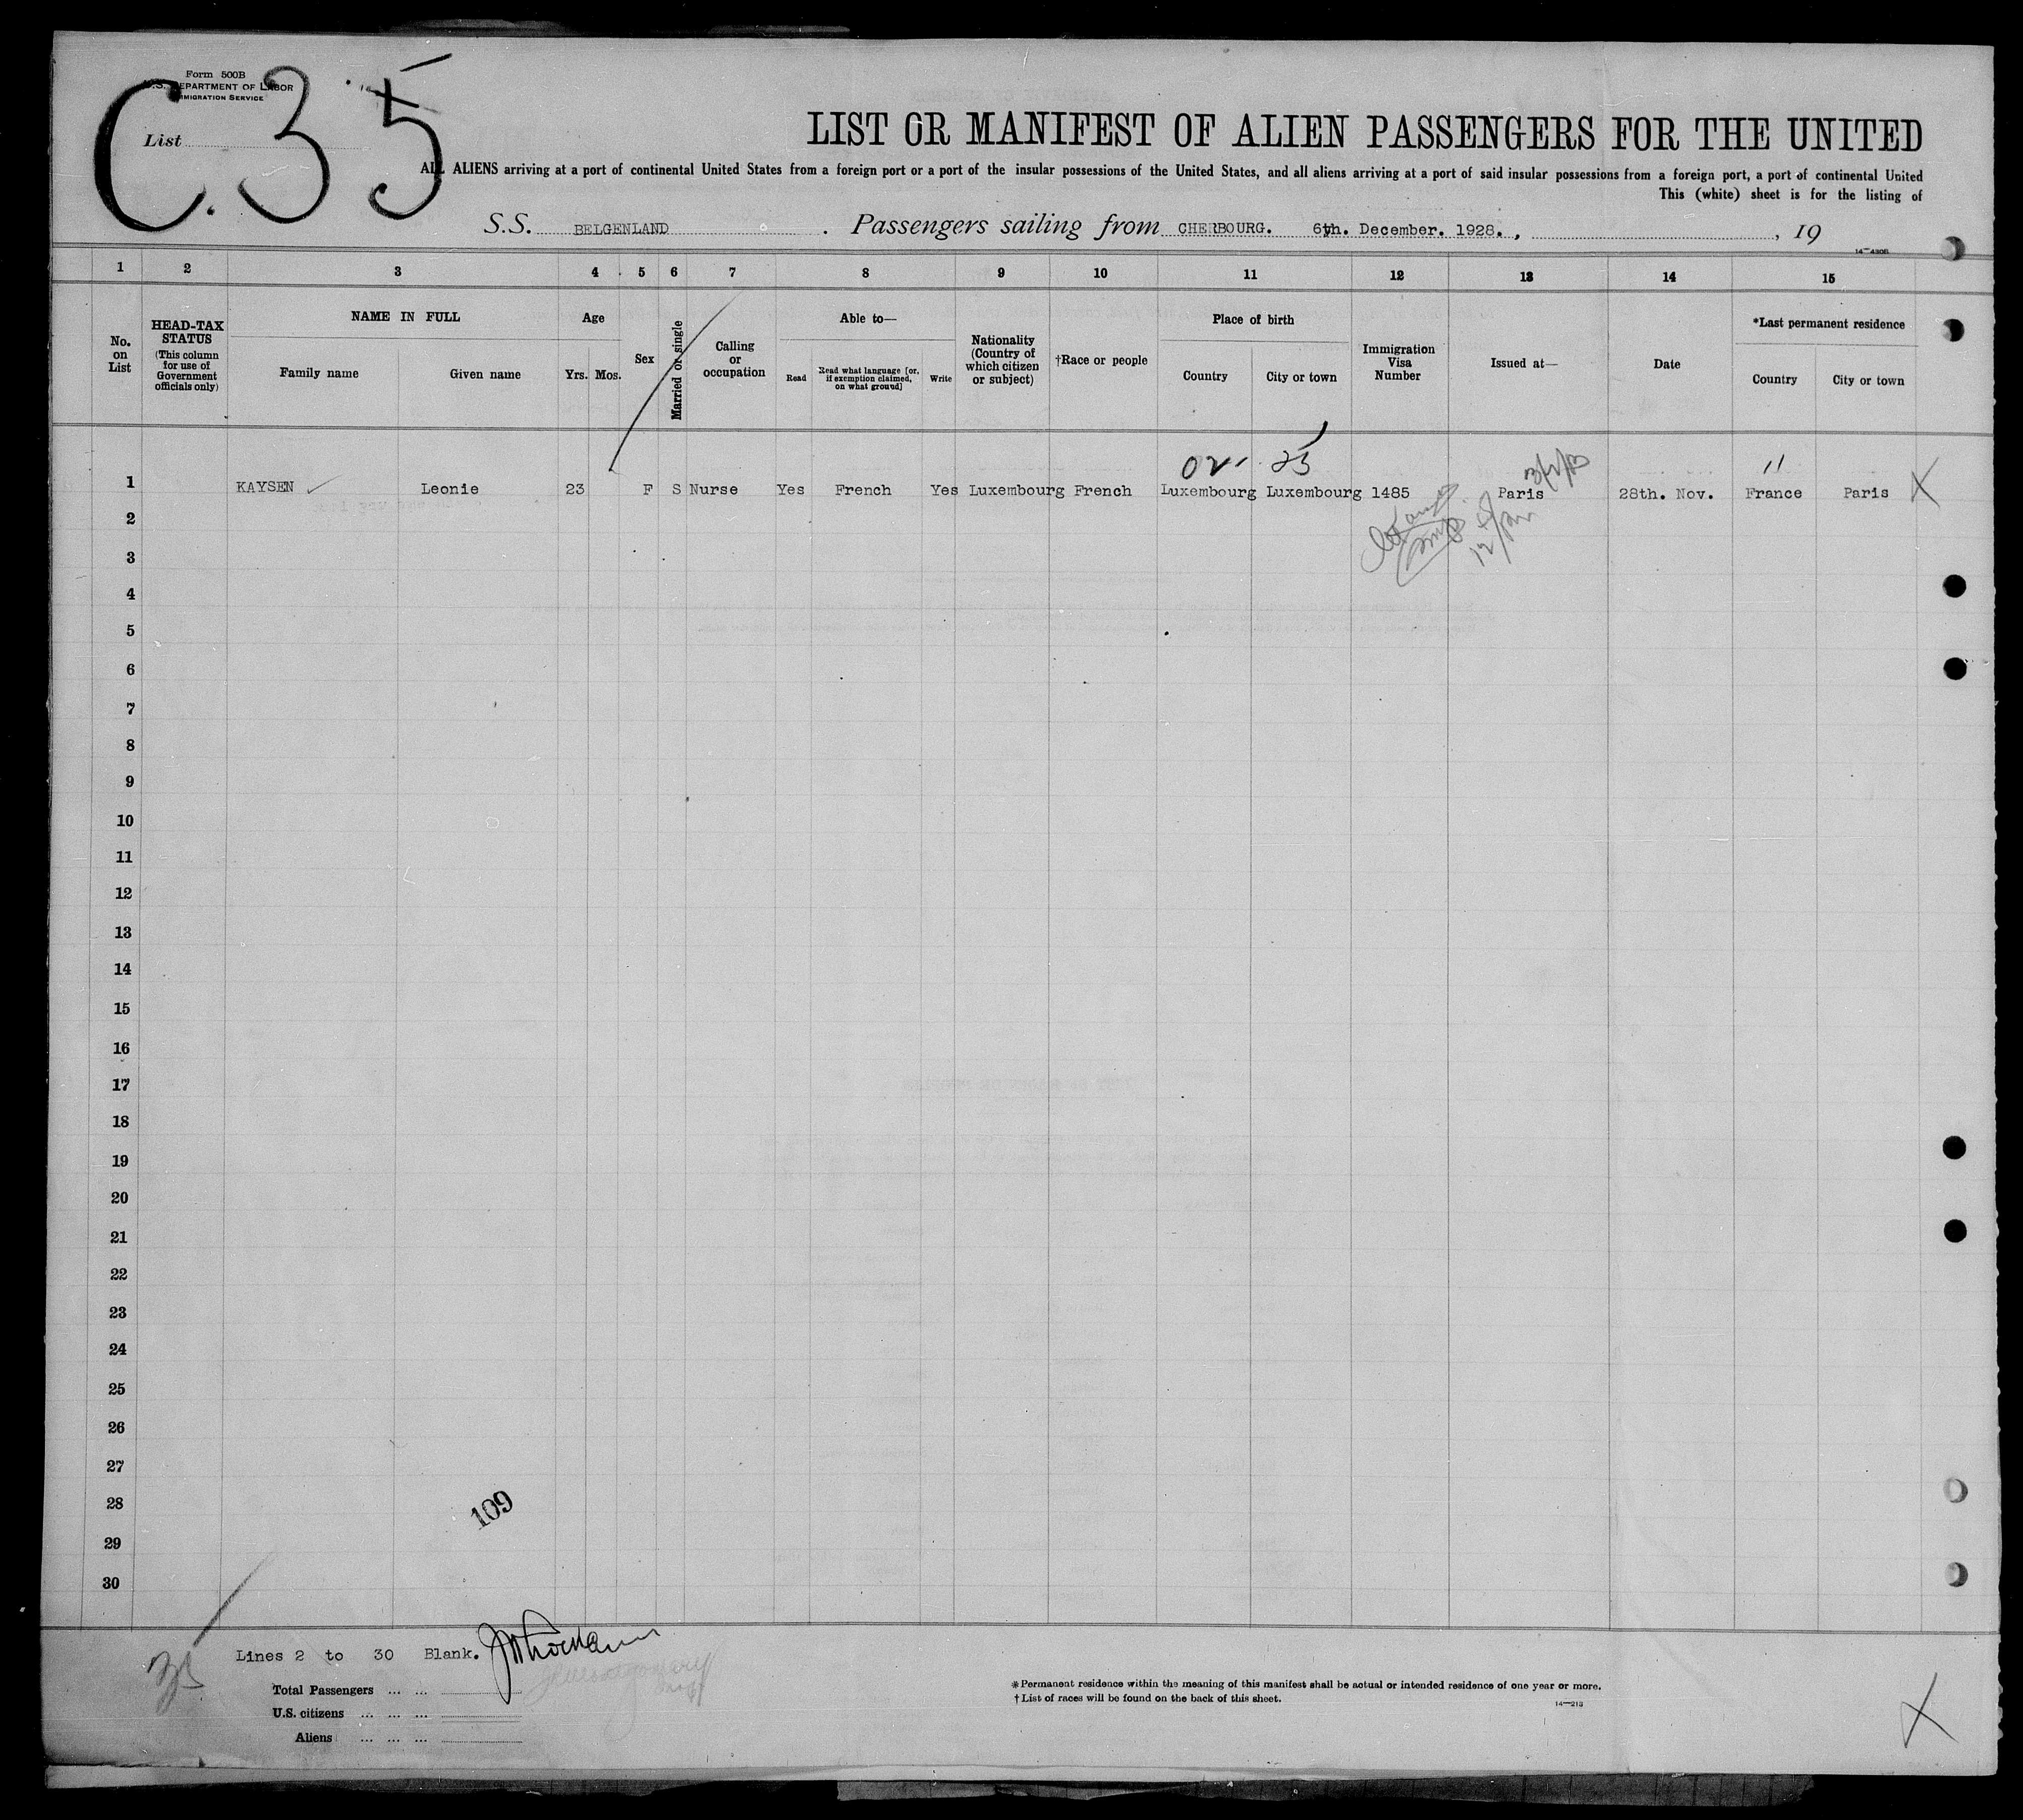 Form 500B
U.S. DEPARTMENT OF LABOR
IMMIGRATION SERVICE
List
C.35
LIST OR MANIFEST OF ALIEN PASSENGERS FOR THE UNITED
ALL ALIENS arriving at a port of continental United States from a foreign port or a port of the insular possessions of the United States, and all aliens arriving at a port of said insular possessions from a foreign port, a port of continental United
This (white) sheet is for the listing of
S.S. BELGENLAND . Passengers sailing from CHERBOURG. 6th. December. 1928. , , 19
14—4306
1 2 3 4 5 6 7 8 9 10 11 12 13 14 15
No. on List
HEAD-TAX STATUS
(This column for use of Government officials only)
NAME IN FULL
Family name
Given name
Age
Yrs. Mos.
Sex
Married or single
Calling or occupation
Able to—
Read
Read what language [or, if exemption claimed, on what ground]
Write
Nationality (Country of which citizen or subject)
†Race or people
Place of birth
Country
City or town
Immigration Visa Number
Issued at—
Date
*Last permanent residence
Country
City or town
1 KAYSEN Leonie 23 F S Nurse Yes French Yes Luxembourg French Luxembourg Luxembourg 1485 Paris 28th. Nov. France Paris X
2
3
4
5
6
7
8
9
10
11
12
13
14
15
16
17
18
19
20
21
22
23
24
25
26
27
28
29
30
109
Lines 2 to 30 Blank.
Total Passengers ... ...
U.S. citizens ... ... ...
Aliens ... ... ...
*Permanent residence within the meaning of this manifest shall be actual or intended residence of one year or more.
†List of races will be found on the back of this sheet.
14—213
X